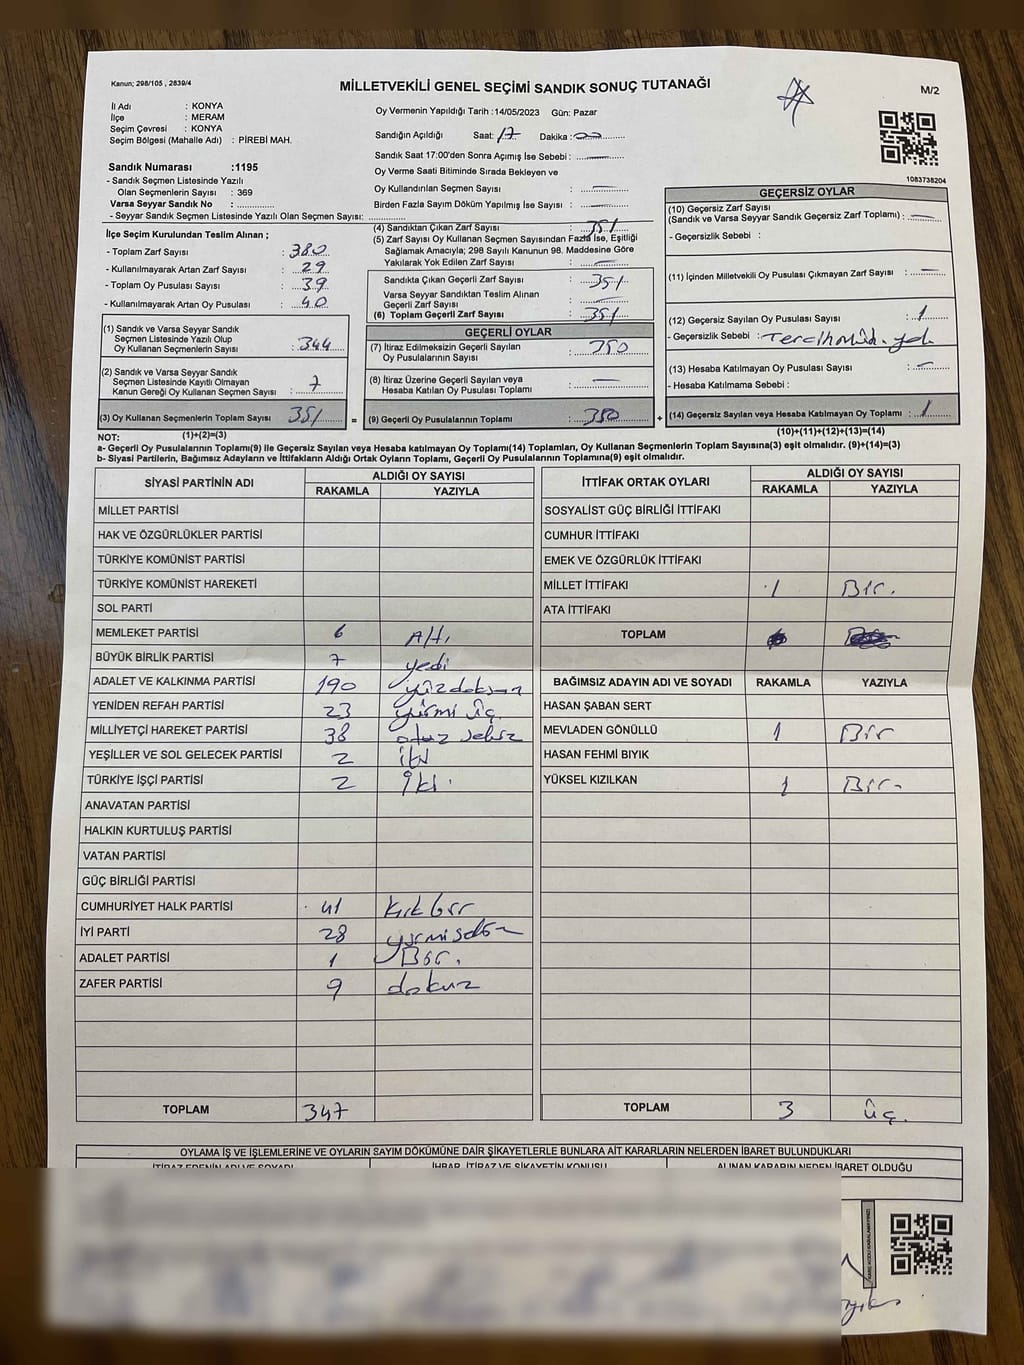 Kanun; 298/105 , 2839/4
MİLLETVEKİLİ GENEL SEÇİMİ SANDIK SONUÇ TUTANAĞI
M/2
İl Adı : KONYA
İlçe : MERAM
Seçim Çevresi : KONYA
Seçim Bölgesi (Mahalle Adı) : PİREBİ MAH.
Sandık Numarası :1195
- Sandık Seçmen Listesinde Yazılı
Olan Seçmenlerin Sayısı : 369
Varsa Seyyar Sandık No : ............
- Seyyar Sandık Seçmen Listesinde Yazılı Olan Seçmen Sayısı: ............
Oy Vermenin Yapıldığı Tarih :14/05/2023 Gün: Pazar
Sandığın Açıldığı Saat: 17 Dakika : 00
Sandık Saat 17:00'den Sonra Açımış İse Sebebi : —
Oy Verme Saati Bitiminde Sırada Bekleyen ve
Oy Kullandırılan Seçmen Sayısı : —
Birden Fazla Sayım Döküm Yapılmış İse Sayısı : —
1083738204
İlçe Seçim Kurulundan Teslim Alınan ;
- Toplam Zarf Sayısı : 380
- Kullanılmayarak Artan Zarf Sayısı : 29
- Toplam Oy Pusulası Sayısı : 39
- Kullanılmayarak Artan Oy Pusulası : 40
(1) Sandık ve Varsa Seyyar Sandık
Seçmen Listesinde Yazılı Olup
Oy Kullanan Seçmenlerin Sayısı : 344
(2) Sandık ve Varsa Seyyar Sandık
Seçmen Listesinde Kayıtlı Olmayan
Kanun Gereği Oy Kullanan Seçmen Sayısı : 7
(3) Oy Kullanan Seçmenlerin Toplam Sayısı 351 =
(1)+(2)=(3)
(4) Sandıktan Çıkan Zarf Sayısı : 351
(5) Zarf Sayısı Oy Kullanan Seçmen Sayısından Fazla İse, Eşitliği
Sağlamak Amacıyla; 298 Sayılı Kanunun 98. Maddesine Göre
Yakılarak Yok Edilen Zarf Sayısı : —
Sandıkta Çıkan Geçerli Zarf Sayısı : 351
Varsa Seyyar Sandıktan Teslim Alınan
Geçerli Zarf Sayısı : —
(6) Toplam Geçerli Zarf Sayısı : 351
GEÇERLİ OYLAR
(7) İtiraz Edilmeksizin Geçerli Sayılan
Oy Pusulalarının Sayısı : 350
(8) İtiraz Üzerine Geçerli Sayılan veya
Hesaba Katılan Oy Pusulası Toplamı : —
(9) Geçerli Oy Pusulalarının Toplamı : 350 +
GEÇERSİZ OYLAR
(10) Geçersiz Zarf Sayısı
(Sandık ve Varsa Seyyar Sandık Geçersiz Zarf Toplamı) : —
- Geçersizlik Sebebi :
(11) İçinden Milletvekili Oy Pusulası Çıkmayan Zarf Sayısı : —
(12) Geçersiz Sayılan Oy Pusulası Sayısı : 1
- Geçersizlik Sebebi :
(13) Hesaba Katılmayan Oy Pusulası Sayısı : —
- Hesaba Katılmama Sebebi :
(14) Geçersiz Sayılan veya Hesaba Katılmayan Oy Toplamı : 1
(10)+(11)+(12)+(13)=(14)
NOT:
a- Geçerli Oy Pusulalarının Toplamı(9) ile Geçersiz Sayılan veya Hesaba katılmayan Oy Toplamı(14) Toplamları, Oy Kullanan Seçmenlerin Toplam Sayısına(3) eşit olmalıdır. (9)+(14)=(3)
b- Siyasi Partilerin, Bağımsız Adayların ve İttifakların Aldığı Ortak Oyların Toplamı, Geçerli Oy Pusulalarının Toplamına(9) eşit olmalıdır.
SİYASİ PARTİNİN ADI ALDIĞI OY SAYISI
RAKAMLA YAZIYLA
MİLLET PARTİSİ
HAK VE ÖZGÜRLÜKLER PARTİSİ
TÜRKİYE KOMÜNİST PARTİSİ
TÜRKİYE KOMÜNİST HAREKETİ
SOL PARTİ
MEMLEKET PARTİSİ 6 Altı
BÜYÜK BİRLİK PARTİSİ 7 yedi
ADALET VE KALKINMA PARTİSİ 190 yüzdoksan
YENİDEN REFAH PARTİSİ 23 yirmi üç
MİLLİYETÇİ HAREKET PARTİSİ 38 otuz sekiz
YEŞİLLER VE SOL GELECEK PARTİSİ 2 iki
TÜRKİYE İŞÇİ PARTİSİ 2 İki
ANAVATAN PARTİSİ
HALKIN KURTULUŞ PARTİSİ
VATAN PARTİSİ
GÜÇ BİRLİĞİ PARTİSİ
CUMHURİYET HALK PARTİSİ 41 kırk bir
İYİ PARTİ 28 yirmisekiz
ADALET PARTİSİ 1 Bir.
ZAFER PARTİSİ 9 dokuz
TOPLAM 347
İTTİFAK ORTAK OYLARI ALDIĞI OY SAYISI
RAKAMLA YAZIYLA
SOSYALİST GÜÇ BİRLİĞİ İTTİFAKI
CUMHUR İTTİFAKI
EMEK VE ÖZGÜRLÜK İTTİFAKI
MİLLET İTTİFAKI 1 Bir.
ATA İTTİFAKI
TOPLAM
BAĞIMSIZ ADAYIN ADI VE SOYADI RAKAMLA YAZIYLA
HASAN ŞABAN SERT
MEVLADEN GÖNÜLLÜ 1 Bir
HASAN FEHMİ BIYIK
YÜKSEL KIZILKAN 1 Bir.
TOPLAM 3 üç.
OYLAMA İŞ VE İŞLEMLERİNE VE OYLARIN SAYIM DÖKÜMÜNE DAİR ŞİKAYETLERLE BUNLARA AİT KARARLARIN NELERDEN İBARET BULUNDUKLARI
İTİRAZ EDENİN ADI VE SOYADI İHBAR, İTİRAZ VE ŞİKAYETİN KONUSU ALINAN KARARIN NEDEN İBARET OLDUĞU